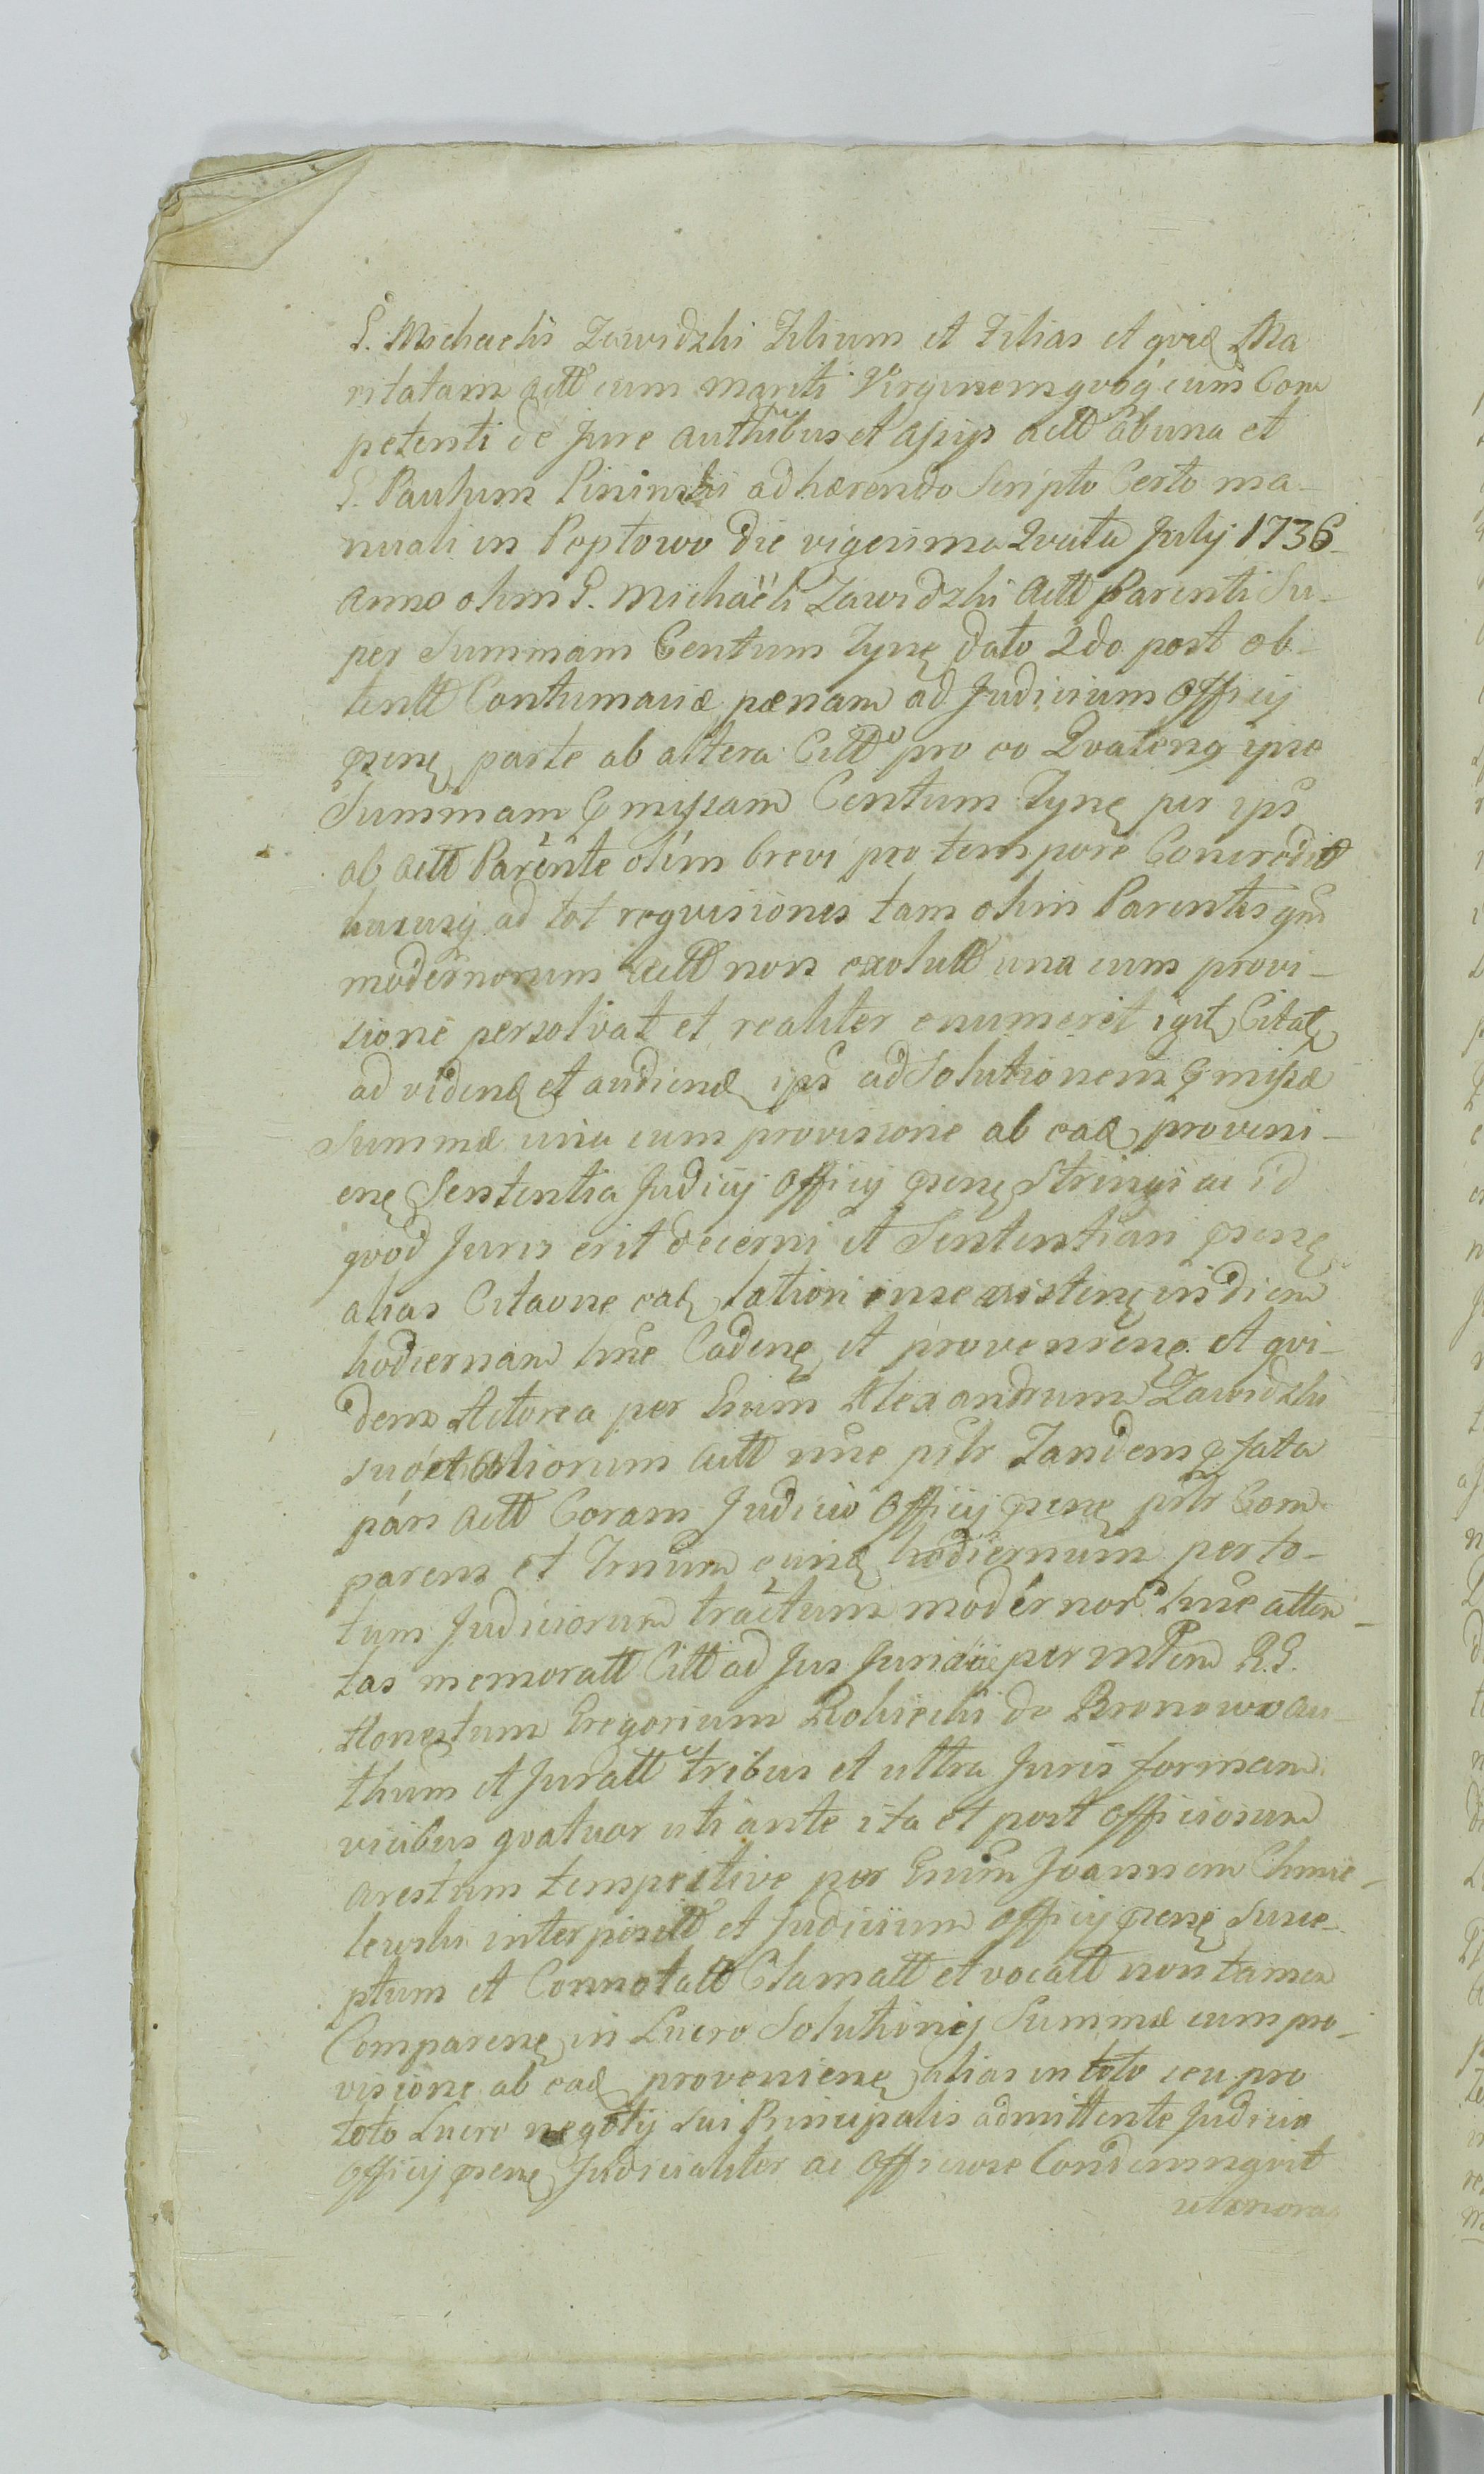 G. Michaelis Zawidzki Filium et Filias et qvid Ma
ritatam actt cum mariti Virginemqvoq cum Com
petenti de Jure authibus et assys actt ab una et
G. Paulum Pininski adhærendo Scripto Certo ma-
nuali in Poptowo die vigesima Qvuta July 1736
anno olim G. Michaëli Zawidzki actt Parenti Su-
per Summam Centum Tyne dato 2do post ob-
tentt Contumaciæ pænam ad Judicium Officij
psens parte ab altera Citto pro eo Qvateng ipse
Summam pmissam Centum Tyne per ips
ab actt Parente olim brevi pro tempore Concreditt
hucusq ad tot reqvisiones tam olim Parentis qm
modernorum actt non exolutt una cum provi-
sione persolvat et realiter enumeret igit Citat
ad vidend et audiend ips ad Solutionem pmissæ
Summæ una cum provisione ab ead proveni-
ens Sententia Judicij Officij psens Stringi ac id
qvod Juris erit decerni et Sententiam psens
alias Citaone eat lationi inse existens in diem
hodiernam hnc Cadens et provenrens et qvi-
dem Actorea per Gnum Alexandrum Zawidzki
suo et aliorum actt nne psltr Tandem pfata
pars actt Coram Judicio Officij psens psltr Com
parens et Tmum eund hodiernum per to-
tum Judiciorum tractum modernor hnc atten-
tas memoratt Citt ad Jus Juridice per mtem R. G.
Honestum Gregorium Rolnicki de Bronowo au-
thum et Juratt tribus et ultra Juris formam
vicibus qvatuor uti ante ita et post officiosum
arestum tempestive per Gnum Joannem Chmie-
lewski interpositt et Judicium Officij psens susce-
ptum et Connotatt Clamatt et vocatt non tamen
Comparens in Lucro Solutionis Summæ cum pro-
visione ab ead proveniens alias in toto seu pro
toto Lucro negotij sui Principalis admittente Judicio
Officij psens Judicialiter ac Officiose Condemnavit